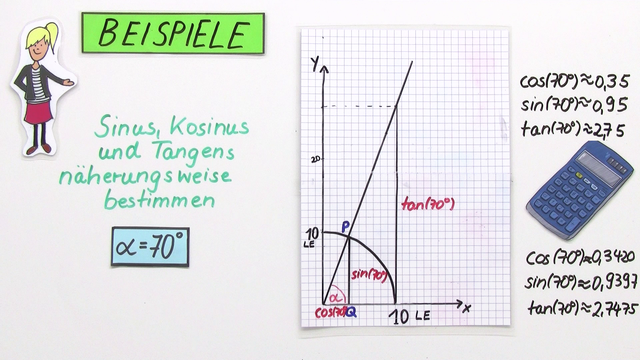 BEISPIELE
Sinus, Kosinus
und Tangens
näherungsweise
bestimmen
α=70°
y
20
10
LE
P
tan(70°)
sin(70°)
α
cos(70°)
Q
10 LE
x
cos(70°)≈0,35
sin(70°)≈0,95
tan(70°)≈2,75
cos(70°)≈0,3420
sin(70°)≈0,9397
tan(70°)≈2,7475